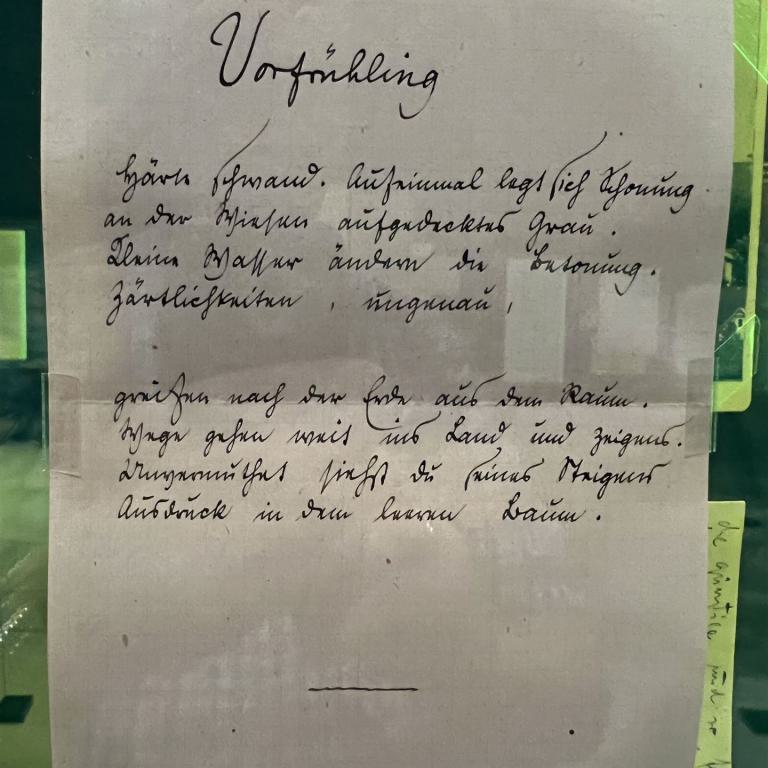 Vorfrühling
Härte schwand. Auf einmal legt sich Schonung
an der Wiesen aufgedecktes Grau.
Kleine Wasser ändern die Betonung.
Zärtlichkeiten, ungenau,
greifen nach der Erde aus dem Raum.
Wege gehen weit ins Land und zeigens.
Unvermuthet siehst du seines Steigens
Ausdruck in dem leeren Baum.